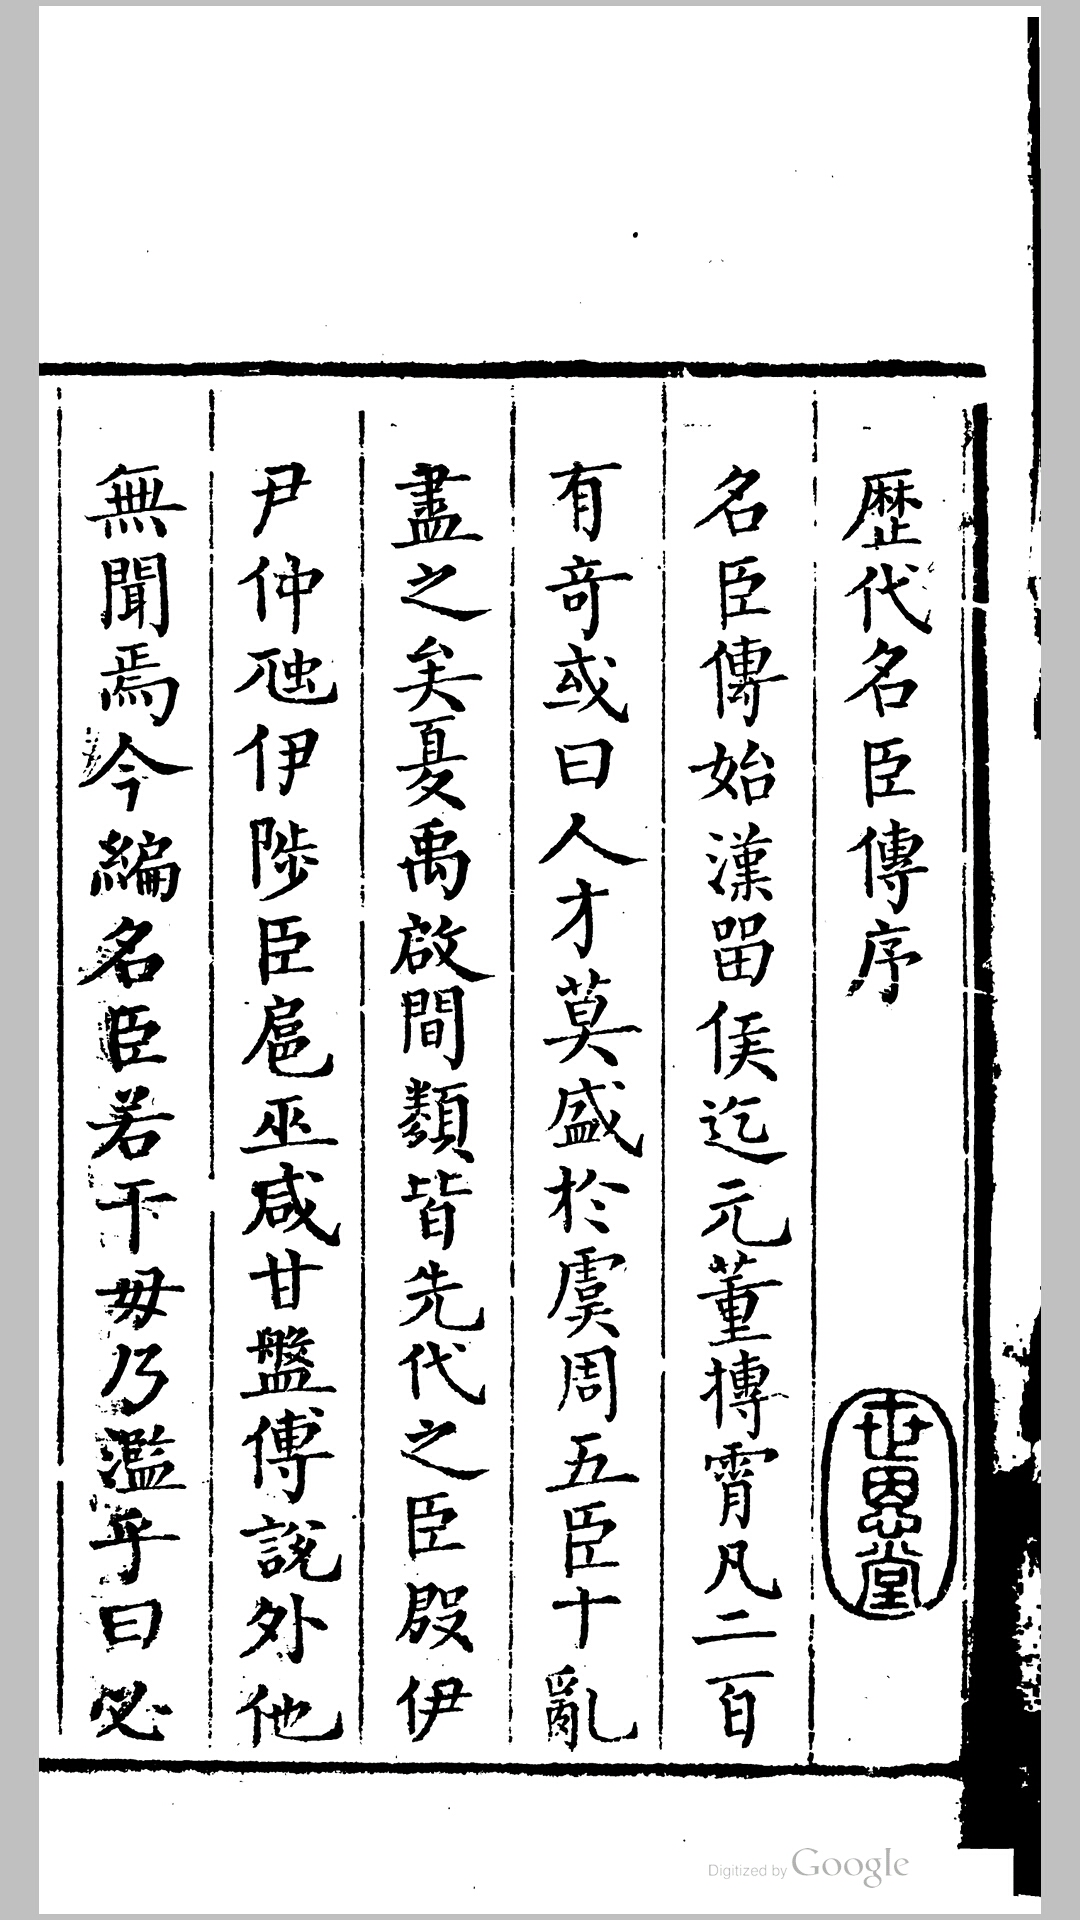 歷代名臣傳序
世恩堂
名臣傳始漢留侯迄元董摶霄凡二百
有奇或曰人才莫盛於虞周五臣十亂
盡之矣夏禹啟間類皆先代之臣殷伊
尹仲虺伊陟臣扈巫咸甘盤傅說外他
無聞焉今編名臣若干毋乃濫乎曰必
Digitized by Google